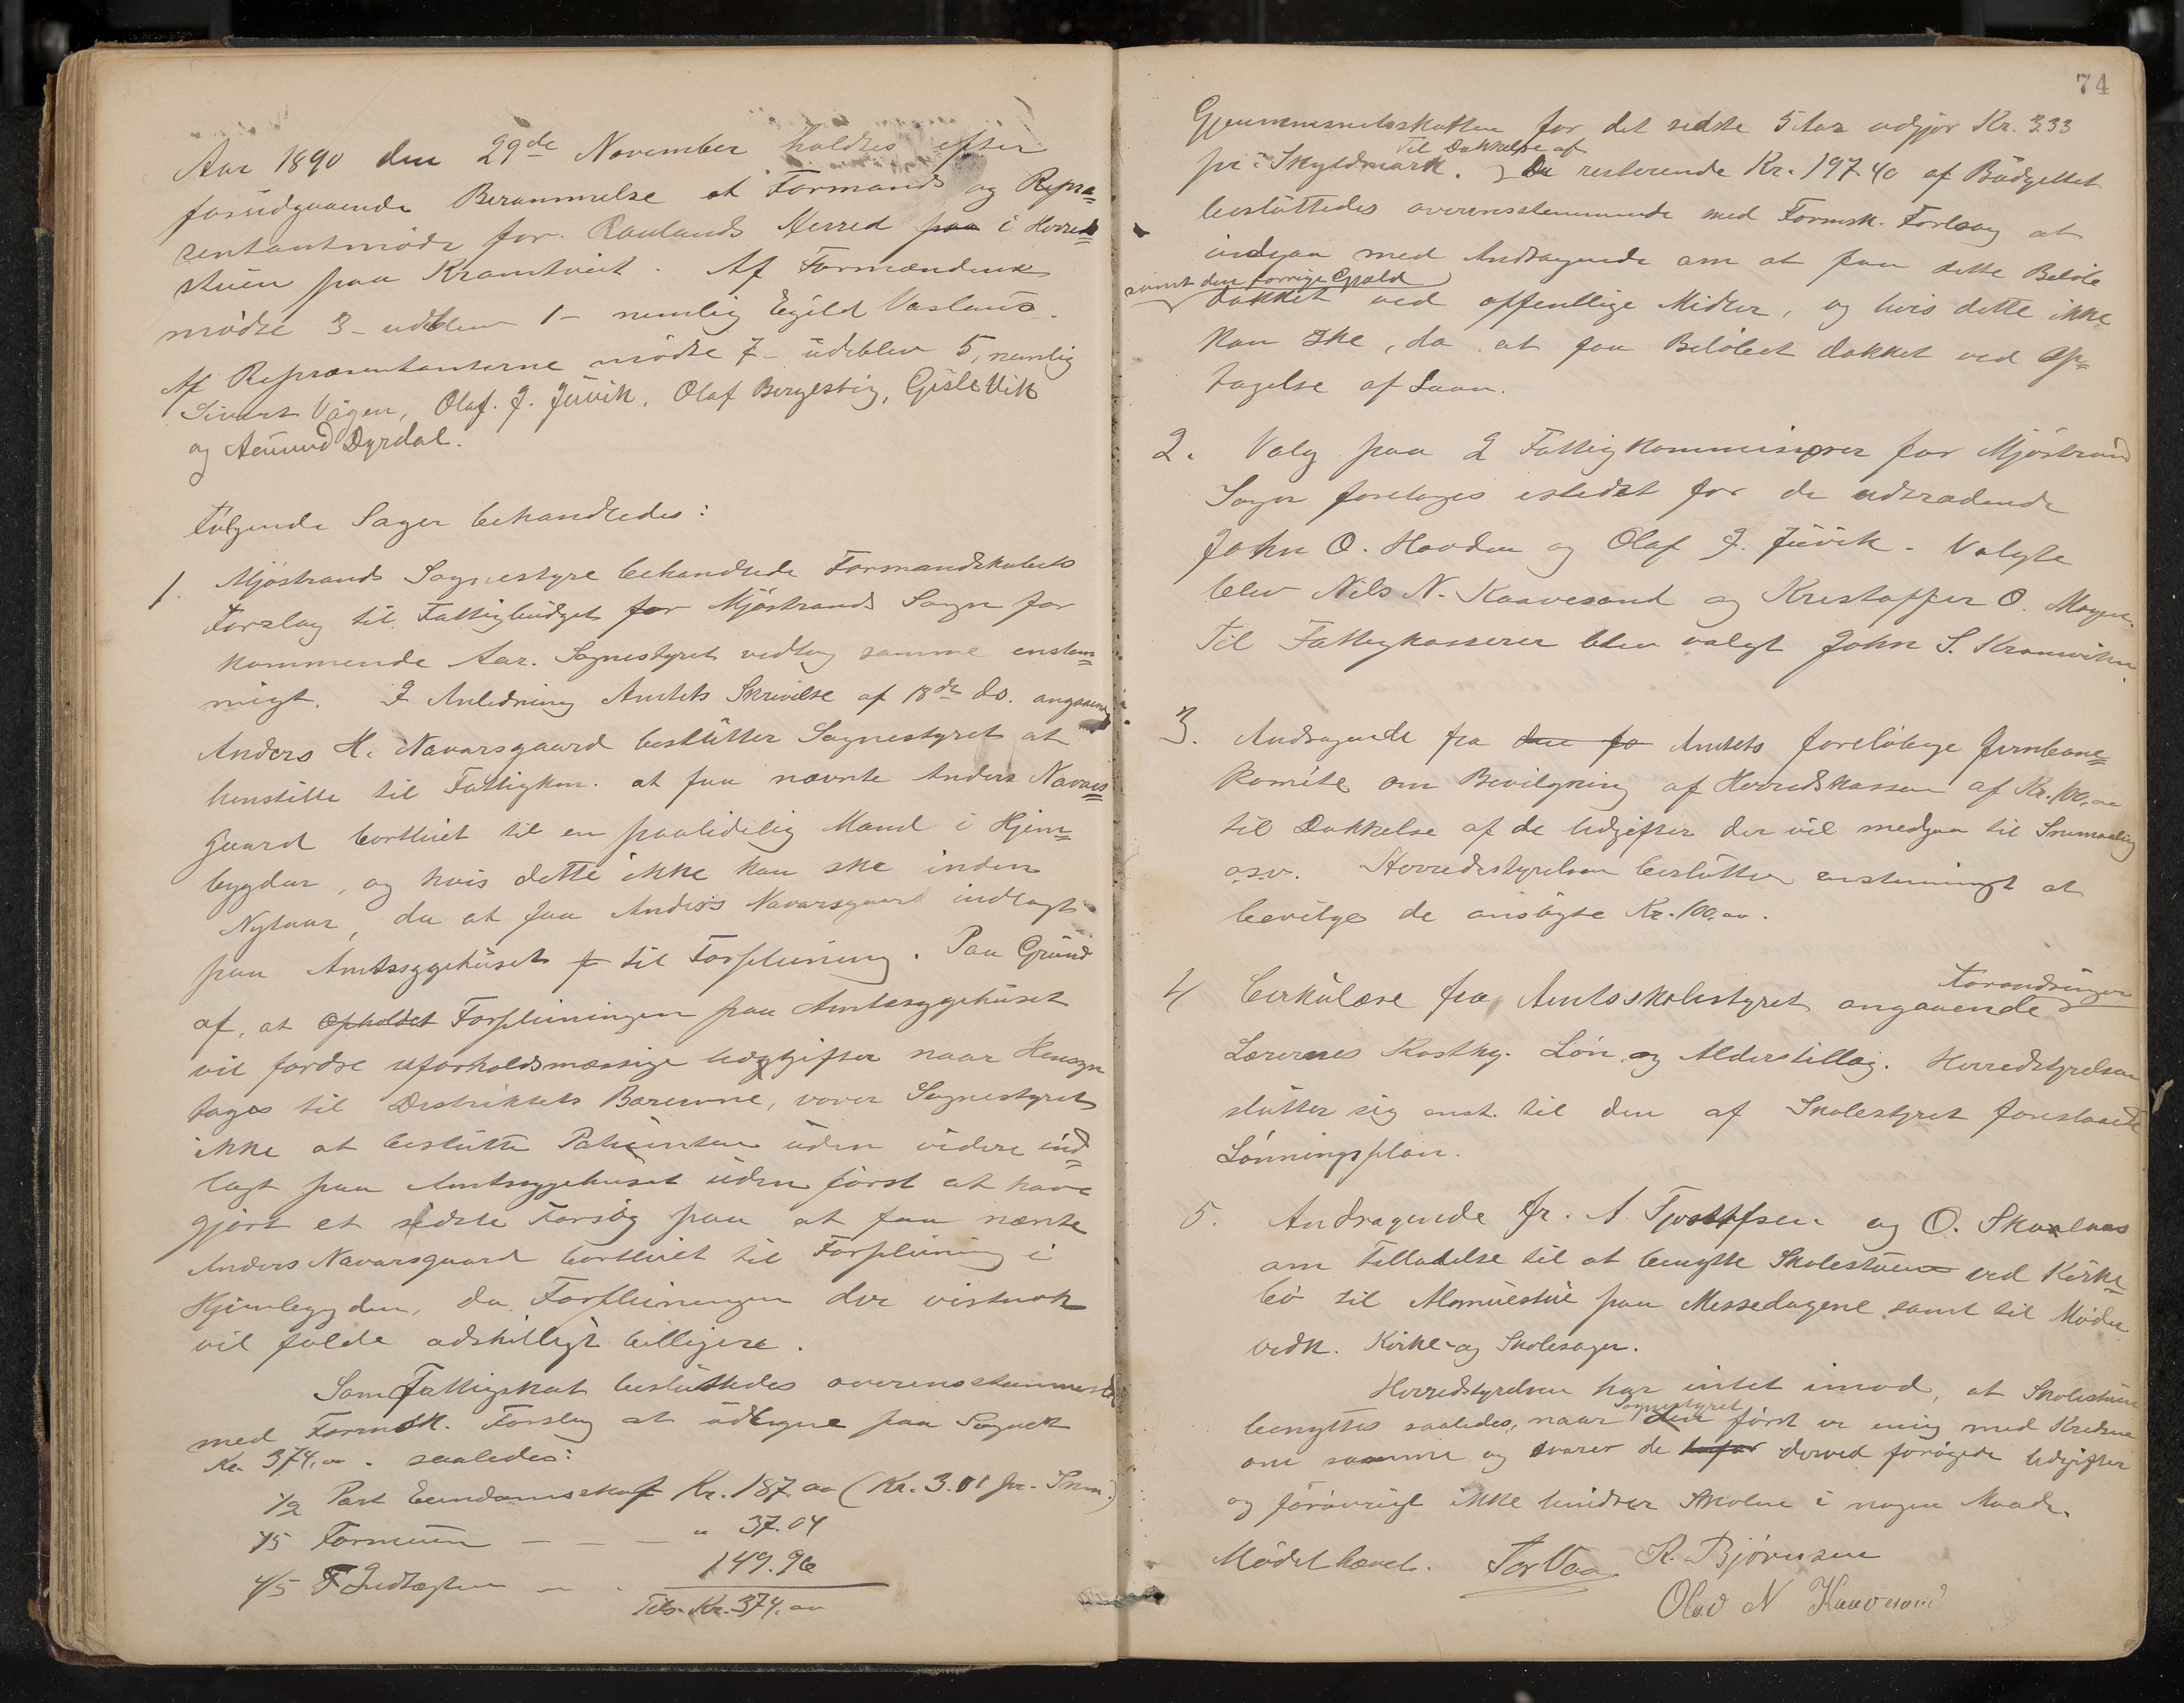 Aar 1890 den 29de November holdtes efter
forudgaaende Berammelse et Formands og Repræ=
sentantmøde for Raulands Herred i Herreds=
stuen paa Kramtveit. Af Formændene
mødte 3 - udeblev 1 - nemlig Egild Vaslaus.
Af Repræsentanterne mødte 7 - udeblev 5, nemlig
Sivert Vågen, Olaf. J. Juvik, Olaf Bergestig, Gisle Vik
og Aamund Dyrdal.
Følgende Sager behandledes:
1. Mjøstrands Sognestyre behandlede Formandskabets
Forslag til Fattigbudget for Mjøstrands Sogn for
kommende Aar. Sognestyret vedtog samme enstem=
migt. I Anledning Amtets Skrivelse af 18de ds. angaaende
Anders H. Navarsgaard beslutter Sognestyret at
henstille til Fattigkom. at faa nævnte Anders Navars=
gaard bortleiet til en paalidelig Mand i Hjem=
bygden, og hvis dette ikke kan ske inden
Nytaar, da at faa Anders Navarsgaard indlagt
paa Amtssygehuset til Forpleining. Paa Grund
af, at Opholdet Forpleiningen paa Amtssygehuset
vil fordre uforholdsmæssige Udgifter naar Hensyn
tages til Distriktets Bæreevne, vover Sognestyret
ikke at beslutte Patienten uden videre ind=
lagt paa Amtssygehuset uden først at have
gjort et sidste Forsøg paa at faa nævnte
Anders Navarsgaard bortleiet til Forpleining i
Hjembygden, da Forpleiningen der vistnok
vil falde adskilligt billigere.
Som Fattigskat besluttedes overensstemmende
med Formsk. Forslag at udligne paa Sognet
Kr. 374,00. saaledes:
1/2 Part Eiendomsskat Kr. 187.00 (Kr. 3.01 pr. Skm.)
1/5 Formuen — — — " 37.04
4/5 Indtægten — . 149.96
Tils. Kr. 374.00
74
Gjennemsnitsskatten for det sidste 5 Aar udgjør Kr. 3.33
pr. Skyldmark. Til Dækkelse af De resterende Kr. 197.40 af Budgettet
besluttedes overensstemmende med Formsk. Forslag at
indgaa med Andragende om at faa dette Beløb
samt den forrige Gjæld
dækket ved offentlige Midler, og hvis dette ikke
kan ske, da at faa Beløbet dækket ved Op=
tagelse af Laan.
2. Valg paa 2 Fattigkommissærer for Mjøstrand
Sogn foretages istedet for de udtrædende
John O. Hovden og Olaf J. Juvik. Valgte
blev Nils N. Kaavesand og Kristoffer O. Mogen.
Til Fattigkasserer blev valgt John S. Kramviken.
3. Andragende fra den fo Amtets foreløbige Jernbane=
komite om Bevilgning af Herredskassen af Kr. 100,00
til Dækkelse af de Udgifter der vil medgaa til Snemaaling
o.s.v. Herredsstyrelsen beslutter enstemmigt at
bevilge de ansøgte Kr. 100,00.
4 Cirkulære fra Amtsskolestyret angaaende Forandringer
Lærernes Kosthg. Løn og Alderstillæg. Herredstyrelsen
slutter sig enst. til den af Skolestyret foreslaaede
Lønningsplan.
5. Andragende fr. A Tjostolfsen og O. Skaalnæs
om Tilladelse til at benytte Skolestuen ved Kirke=
bø til Almuestue paa Messedagene samt til Møder
vedk. Kirke- og Skolesager.
Herredstyrelsen har intet imod, at Skolestuen
benyttes saaledes, naar Sognestyret den først er enig med Kredsen
om samme og svarer de derved forøgede Udgifter
og forøvrigt ikke hindrer Skolen i nogen Maade.
Mødet hævet. Tor Vaa. K. Bjørnsen
Olav N Kaavesand